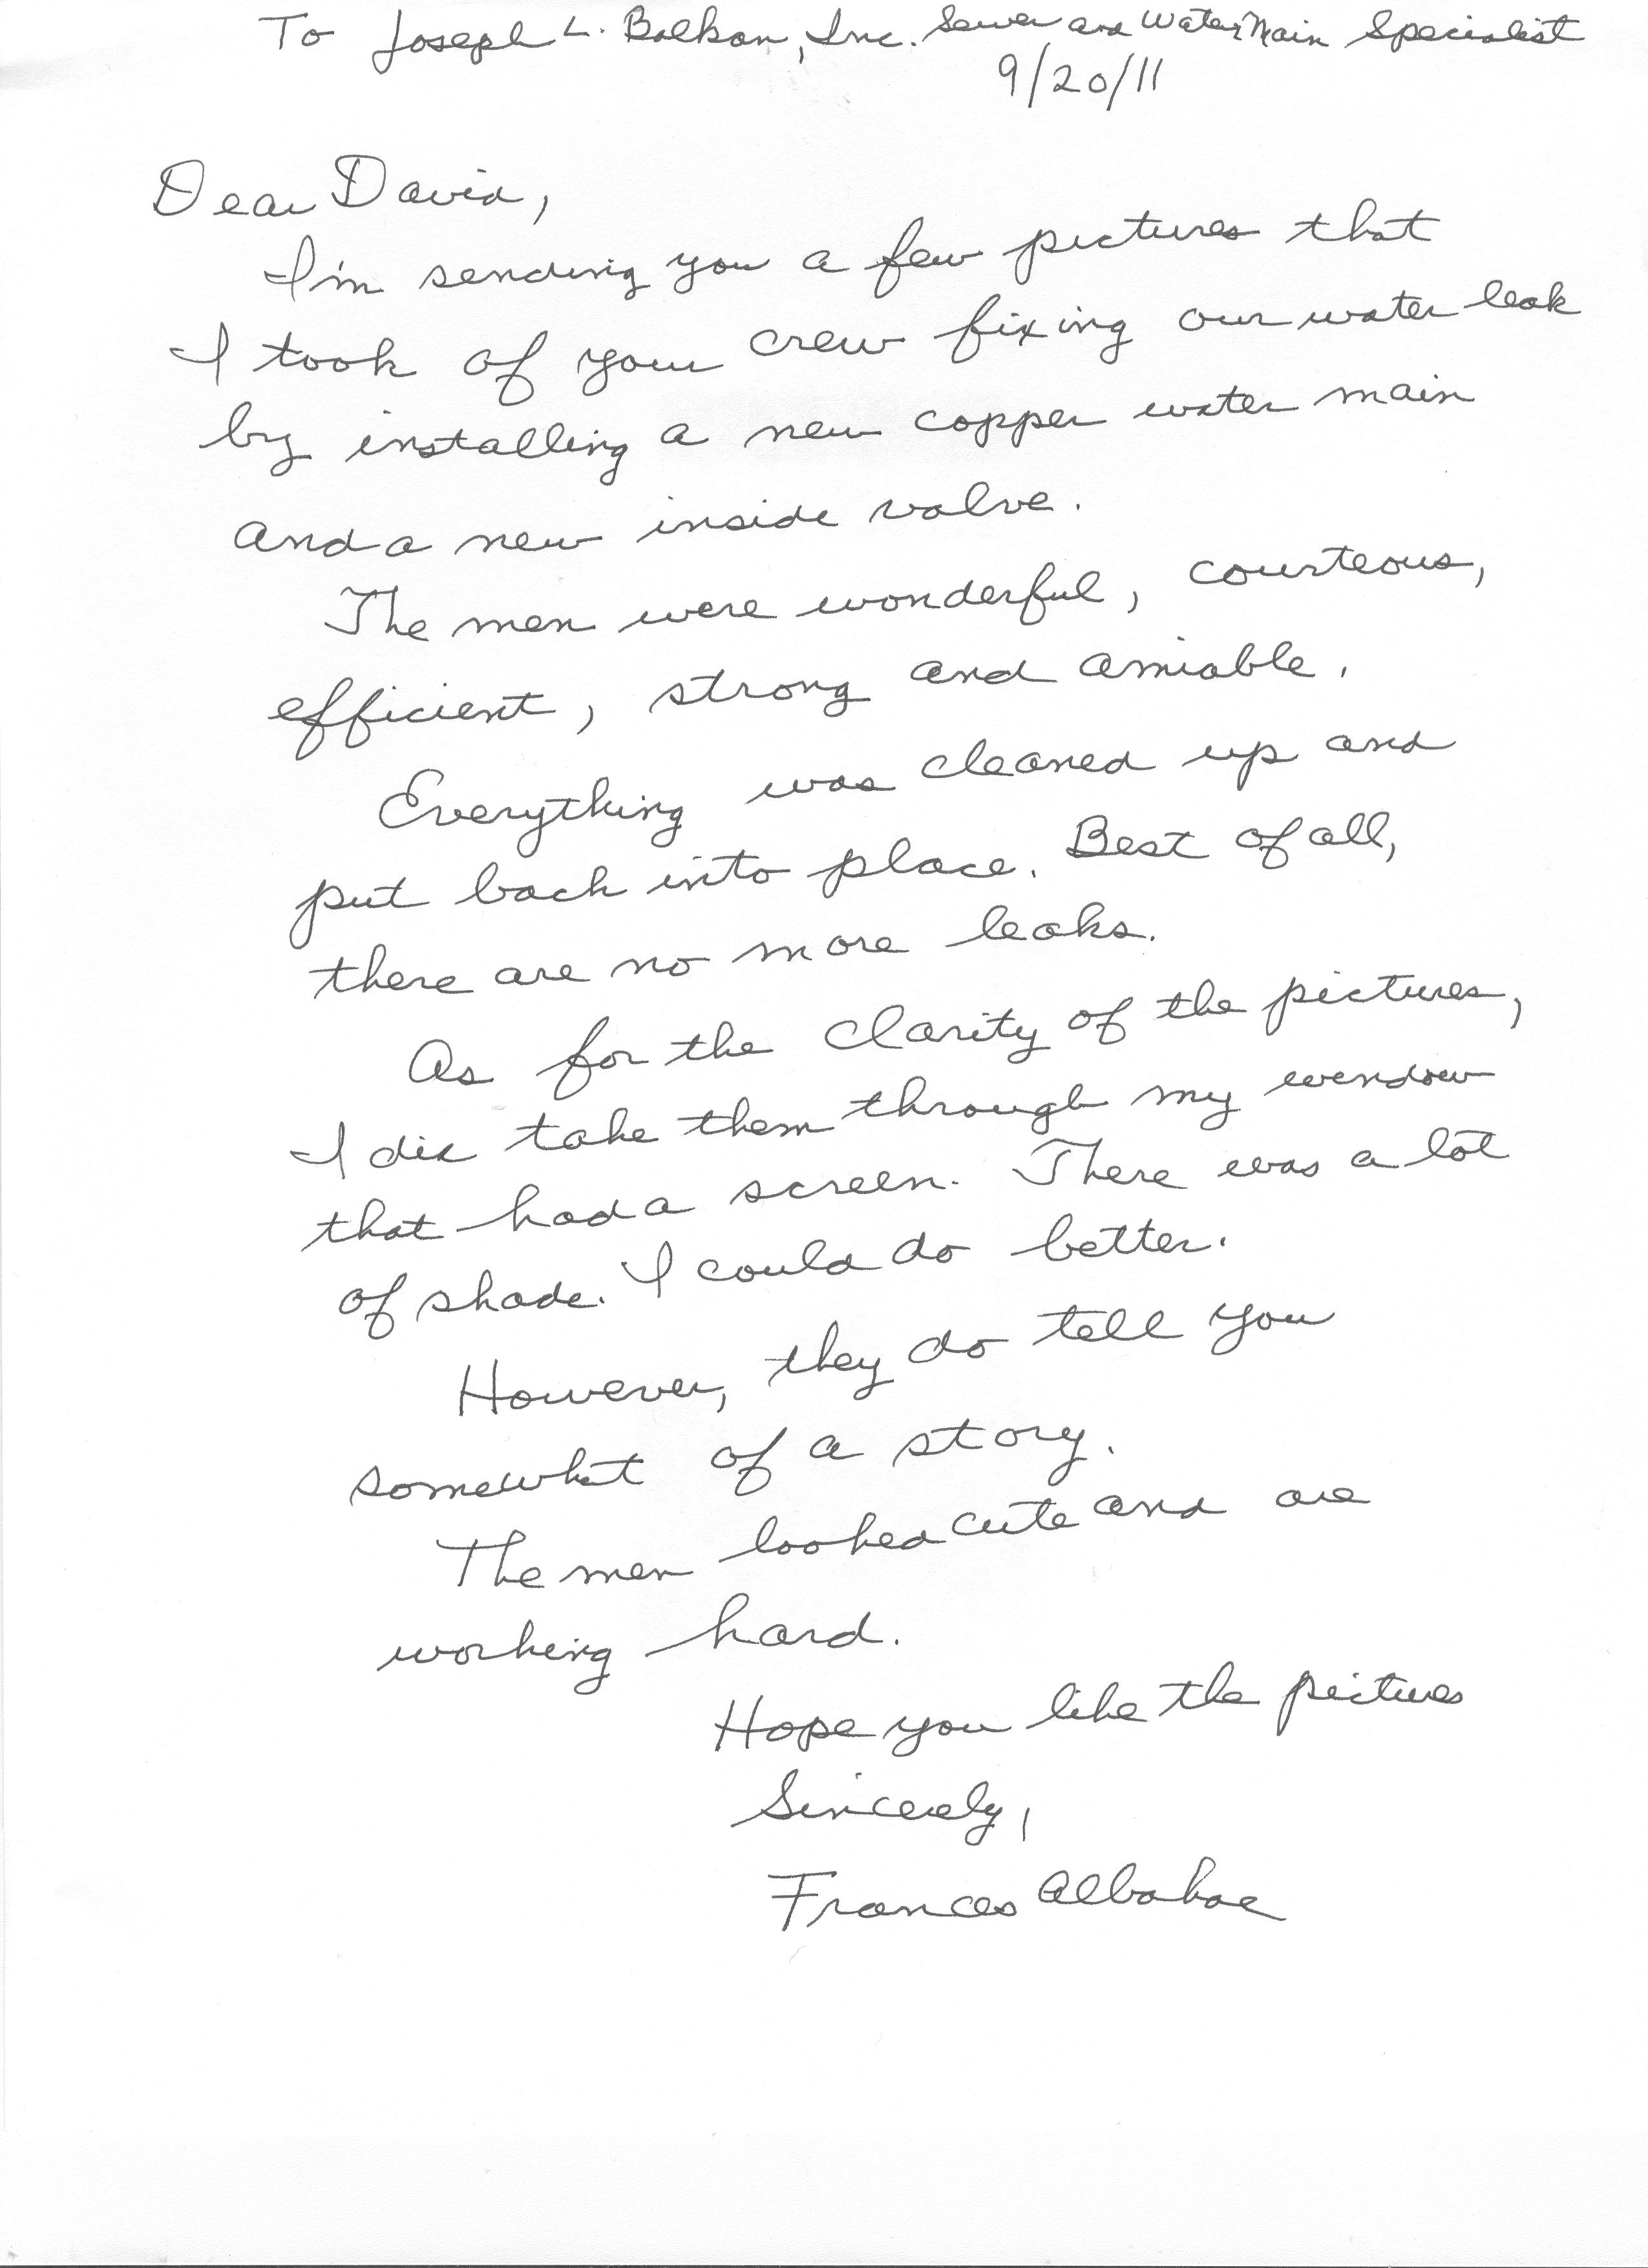 To Joseph L. Balkan, Inc. Sewer and Water Main Specialist
9/20/11
Dear David,
I'm sending you a few pictures that
I took of your crew fixing our water leak
by installing a new copper water main
and a new inside valve.
The men were wonderful, courteous,
efficient, strong and amiable.
Everything was cleaned up and
put back into place. Best of all,
there are no more leaks.
As for the clarity of the pictures,
I did take them through my window
that had a screen. There was a lot
of shade. I could do better.
However, they do tell you
somewhat of a story.
The men looked cute and are
working hard.
Hope you like the pictures
Sincerely,
Frances